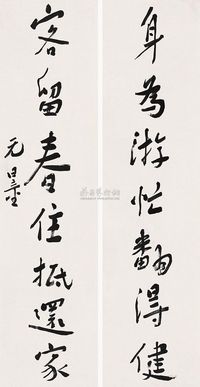 身為游忙翻得健
客留春住抵還家
元墨